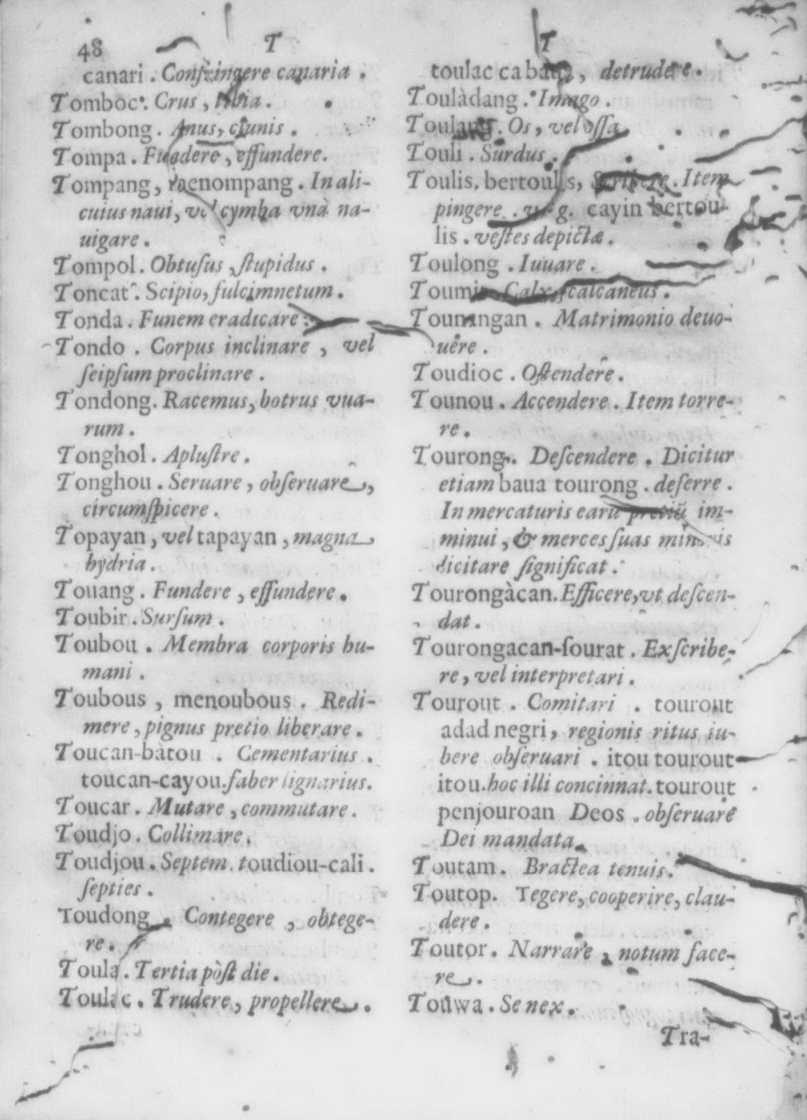 48
T
canari . Confringere canaria .
Tomboc. Crus, tibia.
Tombong. Anus, clunis .
Tompa. Fundere, effundere.
Tompang, menompang. In ali-
cuius naui, vel cymba vnà na-
uigare .
Tompol. Obtusus, stupidus .
Toncat. Scipio, fulcimnetum .
Tonda. Funem eradicare
Tondo . Corpus inclinare , vel
seipsum proclinare .
Tondong. Racemus, botrus vua-
rum .
Tonghol. Aplustre .
Tonghou . Seruare, obseruare,
circumspicere .
Topayan, vel tapayan, magna
hydria .
Touang. Fundere, effundere.
Toubir. Sursum .
Toubou . Membra corporis hu-
mani .
Toubous , menoubous . Redi-
mere, pignus pretio liberare .
Toucan-bàtou . Cementarius .
toucan-cayou. faber lignarius.
Toucar. Mutare, commutare.
Toudjo. Collimare.
Toudjou. Septem. toudiou-cali.
septies .
Toudong . Contegere , obtege-
re .
Toula. Tertia pòst die .
Toulac. Trudere, propellere .
T
toulac ca , detrudere .
Toulàdang. Imago .
. Os, vel ossa
Touli . Surdus .
Toulis, bertoulis, . Item
pingere . v. g. cayin bertou-
lis . vestes depictæ .
Toulong . Iuuare .
Calx, calcaneus .
Tounangan . Matrimonio deuo-
uere .
Toudioc . Ostendere .
Tounou . Accendere . Item torre-
re .
Tourong. Descendere . Dicitur
etiam baua tourong . deferre .
In mercaturis earū pretiū im-
minui, & merces suas minoris
dicitare significat .
Tourongàcan. Efficere, vt descen-
dat .
Tourongacan-sourat . Exscribe-
re, vel interpretari .
Tourout . Comitari . tourout
adad negri, regionis ritus iu-
bere obseruari . itou tourout
itou. hoc illi concinnat. tourout
penjouroan Deos . obseruare
Dei mandata
Toutam . Bractea tenuis .
Toutop. Tegere, cooperire, clau-
dere .
Toutor. Narrare , notum face-
re .
Touwa . Senex .
Tra-